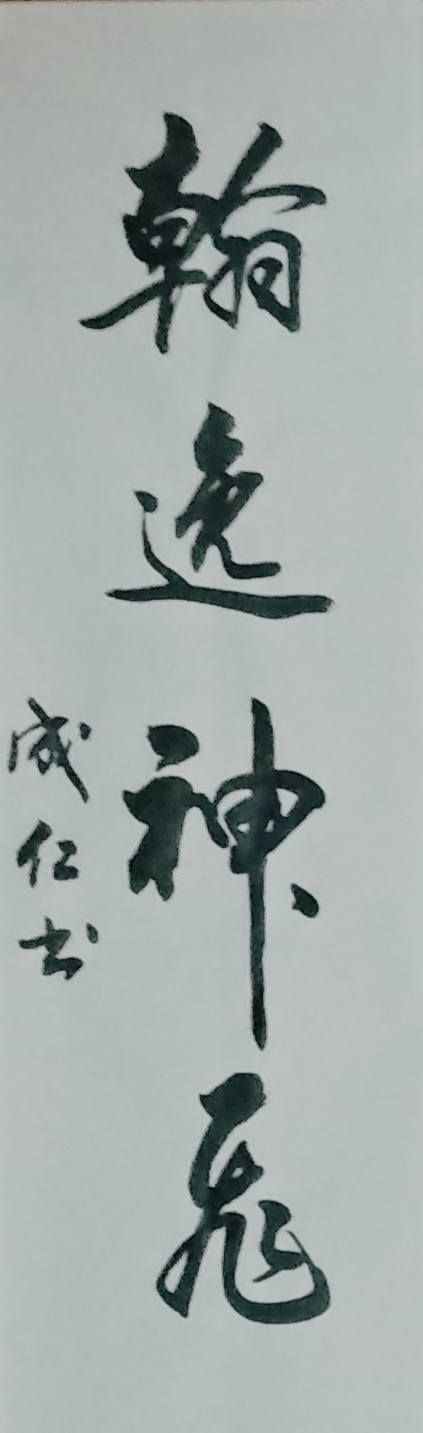 翰逸神飛
成仁书